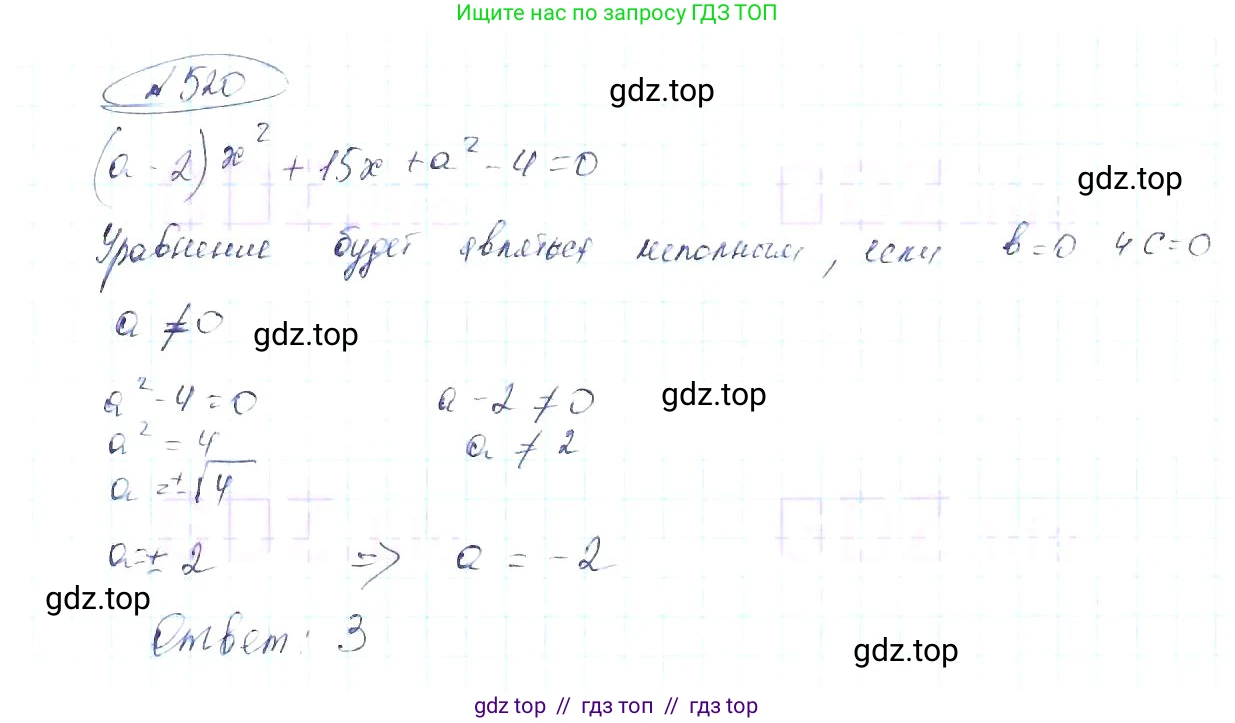 Ищите нас по запросу ГДЗ ТОП
№520
gdz.top
(a - 2)x² + 15x + a² - 4 = 0
gdz.top
Уравнение будет являться неполным, если в=0 и С=0
a ≠ 0
gdz.top
a² - 4 = 0 a - 2 ≠ 0
gdz.top
a² = 4 a ≠ 2
a = ±√4
a = ± 2 => a = -2
gdz.top
Ответ: 3
gdz.top
gdz top // гдз топ // gdz top